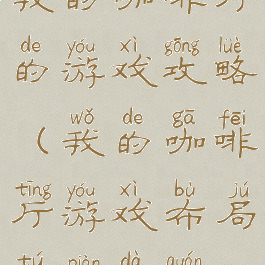 de yóu xì gōng lüè
的游戏攻略
wǒ de gā fēi
（我的咖啡
tīng yóu xì bù jú
厅游戏布局
tú piàn dà quán